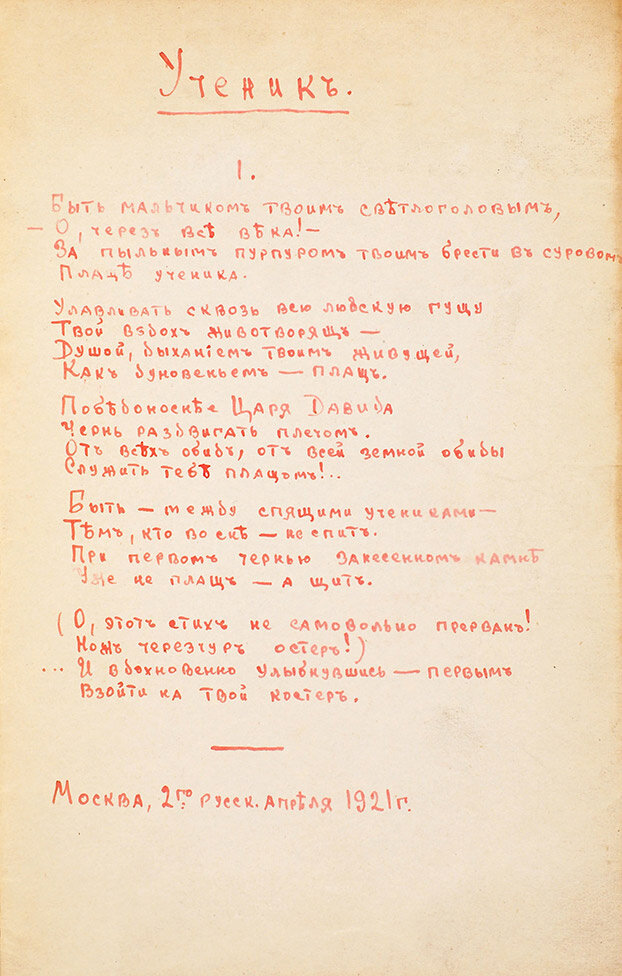 Ученикъ.
1.
Быть мальчикомъ твоимъ свѣтлоголовымъ,
— О, черезъ всѣ вѣка! —
За пыльнымъ пурпуромъ твоимъ брести въ суровомъ
Плащѣ ученика.
Улавливать сквозь всю людскую гущу
Твой вздохъ животворящъ —
Душой, дыханіем твоимъ живущей,
Какъ дуновеньем — плащъ.
Побѣдоноснѣе Царя Давида
Чернь раздвигать плечомъ.
Отъ всѣхъ обидъ, отъ всей земной обиды
Служить тебѣ плащомъ!..
Быть — между спящими учениками —
Тѣмъ, кто во снѣ — не спитъ.
При первомъ чернью занесенномъ камнѣ
Уже не плащъ — а щитъ.
(О, этотъ стихъ не самовольно прерванъ!
Ножъ черезчуръ остеръ!)
... И вдохновенно улыбнувшись — первымъ
Взойти на твой костеръ.
Москва, 2го русск. апрѣля 1921г.